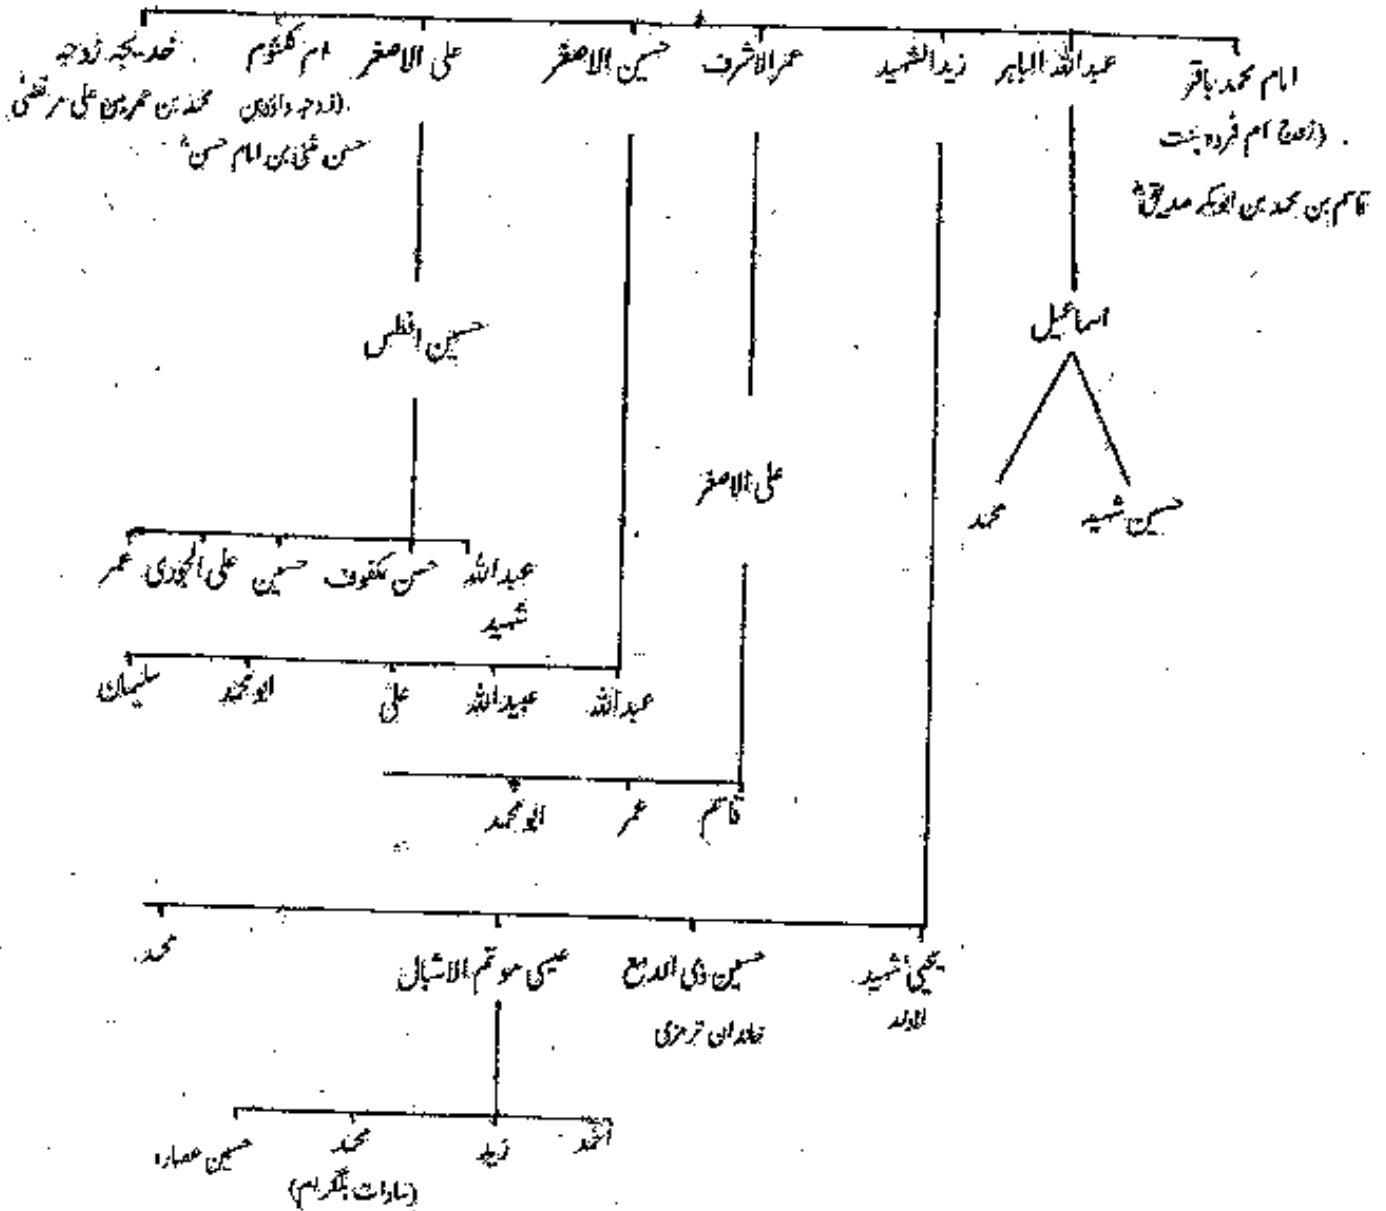 امام محمد باقر
(زوج ام فردہ بنت
قاسم بن محمد بن ابوبکر صدیقؓ
عبداللہ الباہر
زید الشہید
عمر الاشرف
حسین الاصغر
علی الاصغر
ام کلثوم
(زوجہ داؤد بن
حسن مثنی بن امام حسنؑ
خدیجہ زوجہ
محمد بن عمر بن علی مرتضیٰ
اسماعیل
حسین افطس
علی الاصغر
حسین شہید
محمد
عبداللہ
شہید
حسن مکفوف
حسین
علی الجوری
عمر
عبداللہ
عبیداللہ
علی
ابو محمد
سلیمان
قاسم
عمر
ابو محمد
یحییٰ شہید
لاولد
حسین ذی الدمع
خاندان ترمزی
عیسی موتم الاشبال
محمد
احمد
زید
محمد
(سادات بلگرام)
حسین